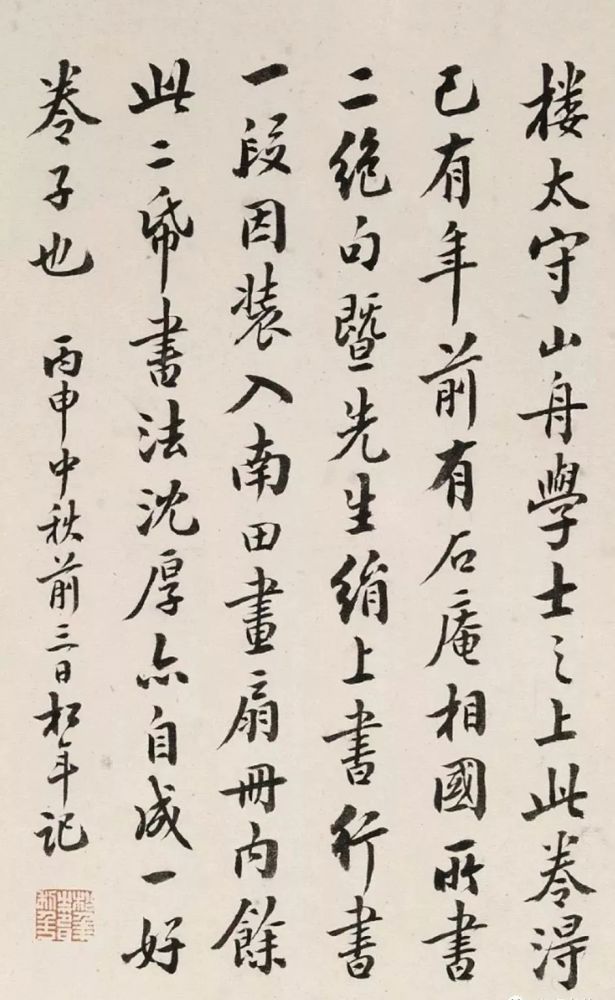 楼太守山舟學士之上此卷得
已有年前有石庵相國所書
二絶句暨先生絹上書行書
一段因裝入南田畫扇冊内餘
此二帋書法沈厚亦自成一好
卷子也 丙申中秋前三日松年記